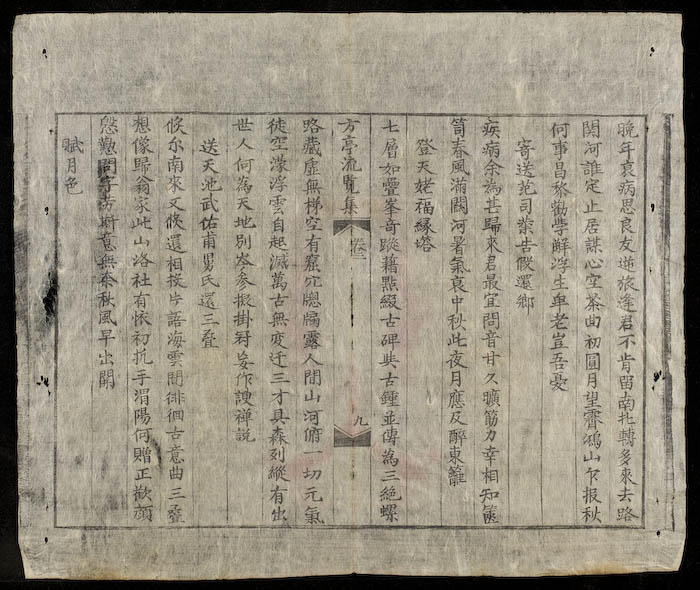 晚年哀病思良友逆旅逢君不肯留南北轉多來去路
関河誰定止居謀心空茶曲初圓月望霽鴻山乍报秋
何事昌黎勸學解浮生卑老豈吾憂
寄送范司業告假還鄉
疾病余為甚歸來君最宜問音甘久曠筋力幸相知篋
笥春風滿關河暑氣衰中秋此夜月應及醉東籬
登天姥福緣塔
七層如疊峯奇蹤藉點綴古碑與古鍾並傳為三絕螺
方亭流覧集 卷三 九
路藏虛無梯空有窟穴牕牖露人間山河俯一切元氣
徒空濛浮雲自起滅萬古無变迁三才具森列縱有出
世人何為天地別參擬掛冠妄作諛禅説
送天池武佑甫男氏還三叠
倏尔南來又倏還相挍片語海雲間徘徊古意曲三疊
想像歸翁家此山洛社有懐初抗手渭陽何贈正歡顔
慇懃問字斯意無奈秋風早出關
賦月色